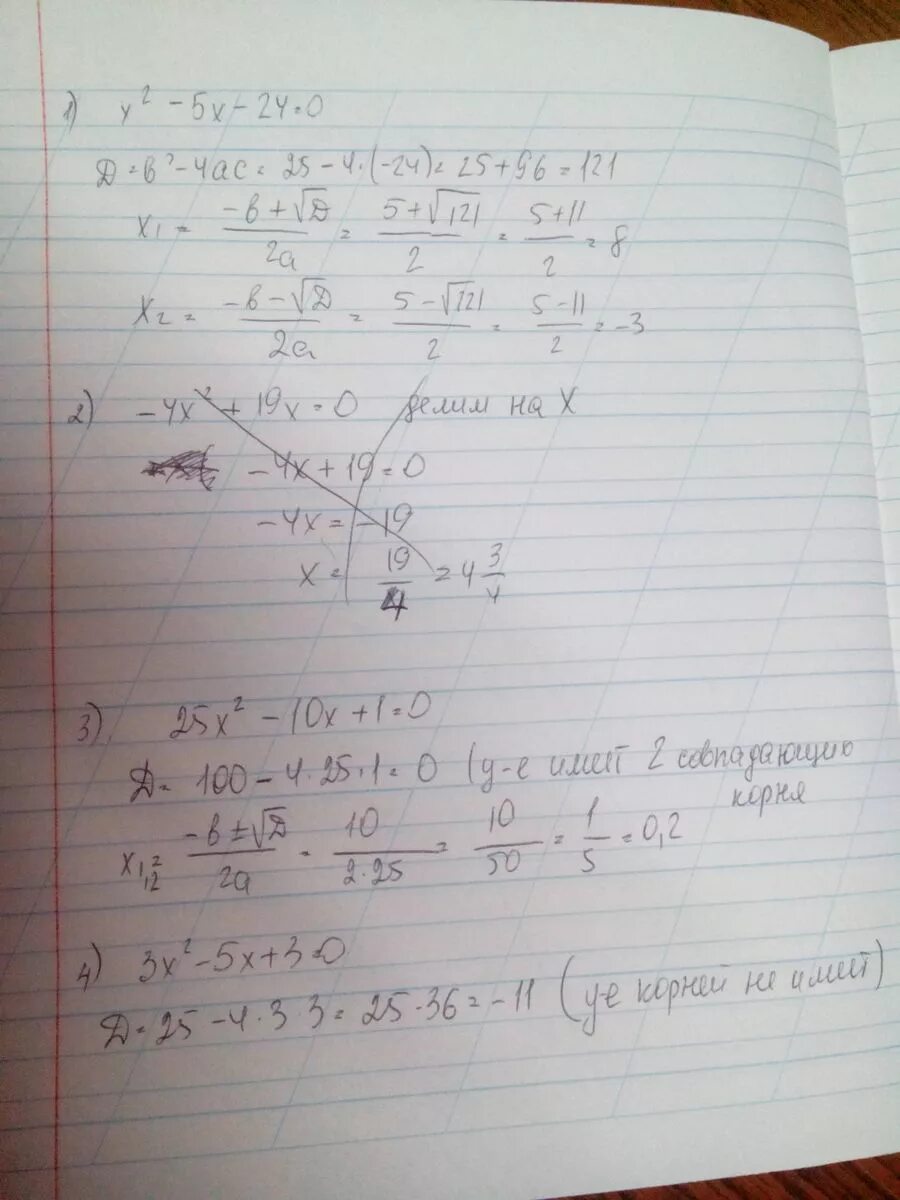 1) x² - 5x - 24 = 0
D = b² - 4ac = 25 - 4·(-24) = 25 + 96 = 121
x₁ = (-b + √D)/2a = (5 + √121)/2 = (5 + 11)/2 = 8
x₂ = (-b - √D)/2a = (5 - √121)/2 = (5 - 11)/2 = -3
2) -4x² + 19x = 0 делим на x
-4x + 19 = 0
-4x = -19
x = 19/4 = 4 3/4
3) 25x² - 10x + 1 = 0
D = 100 - 4·25·1 = 0 (у-е имеет 2 совпадающих
корня
x₁,₂ = (-b ± √D)/2a = 10/(2·25) = 10/50 = 1/5 = 0,2
4) 3x² - 5x + 3 = 0
D = 25 - 4·3·3 = 25 - 36 = -11 (у-е корней не имеет)